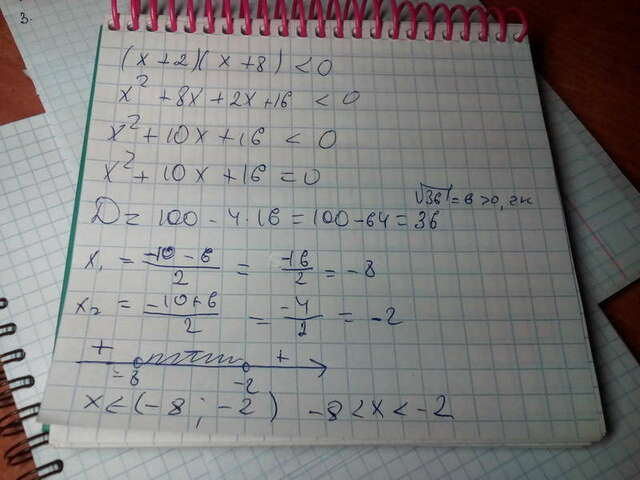 3.
(x+2)(x+8) < 0
x² + 8x + 2x + 16 < 0
x² + 10x + 16 < 0
x² + 10x + 16 = 0
√36 = 6 > 0, 2к
D = 100 - 4·16 = 100 - 64 = 36
x₁ = (-10 - 6)/2 = -16/2 = -8
x₂ = (-10+6)/2 = -4/2 = -2
+ +
-8 -2
x < (-8; -2) -8 < x < -2